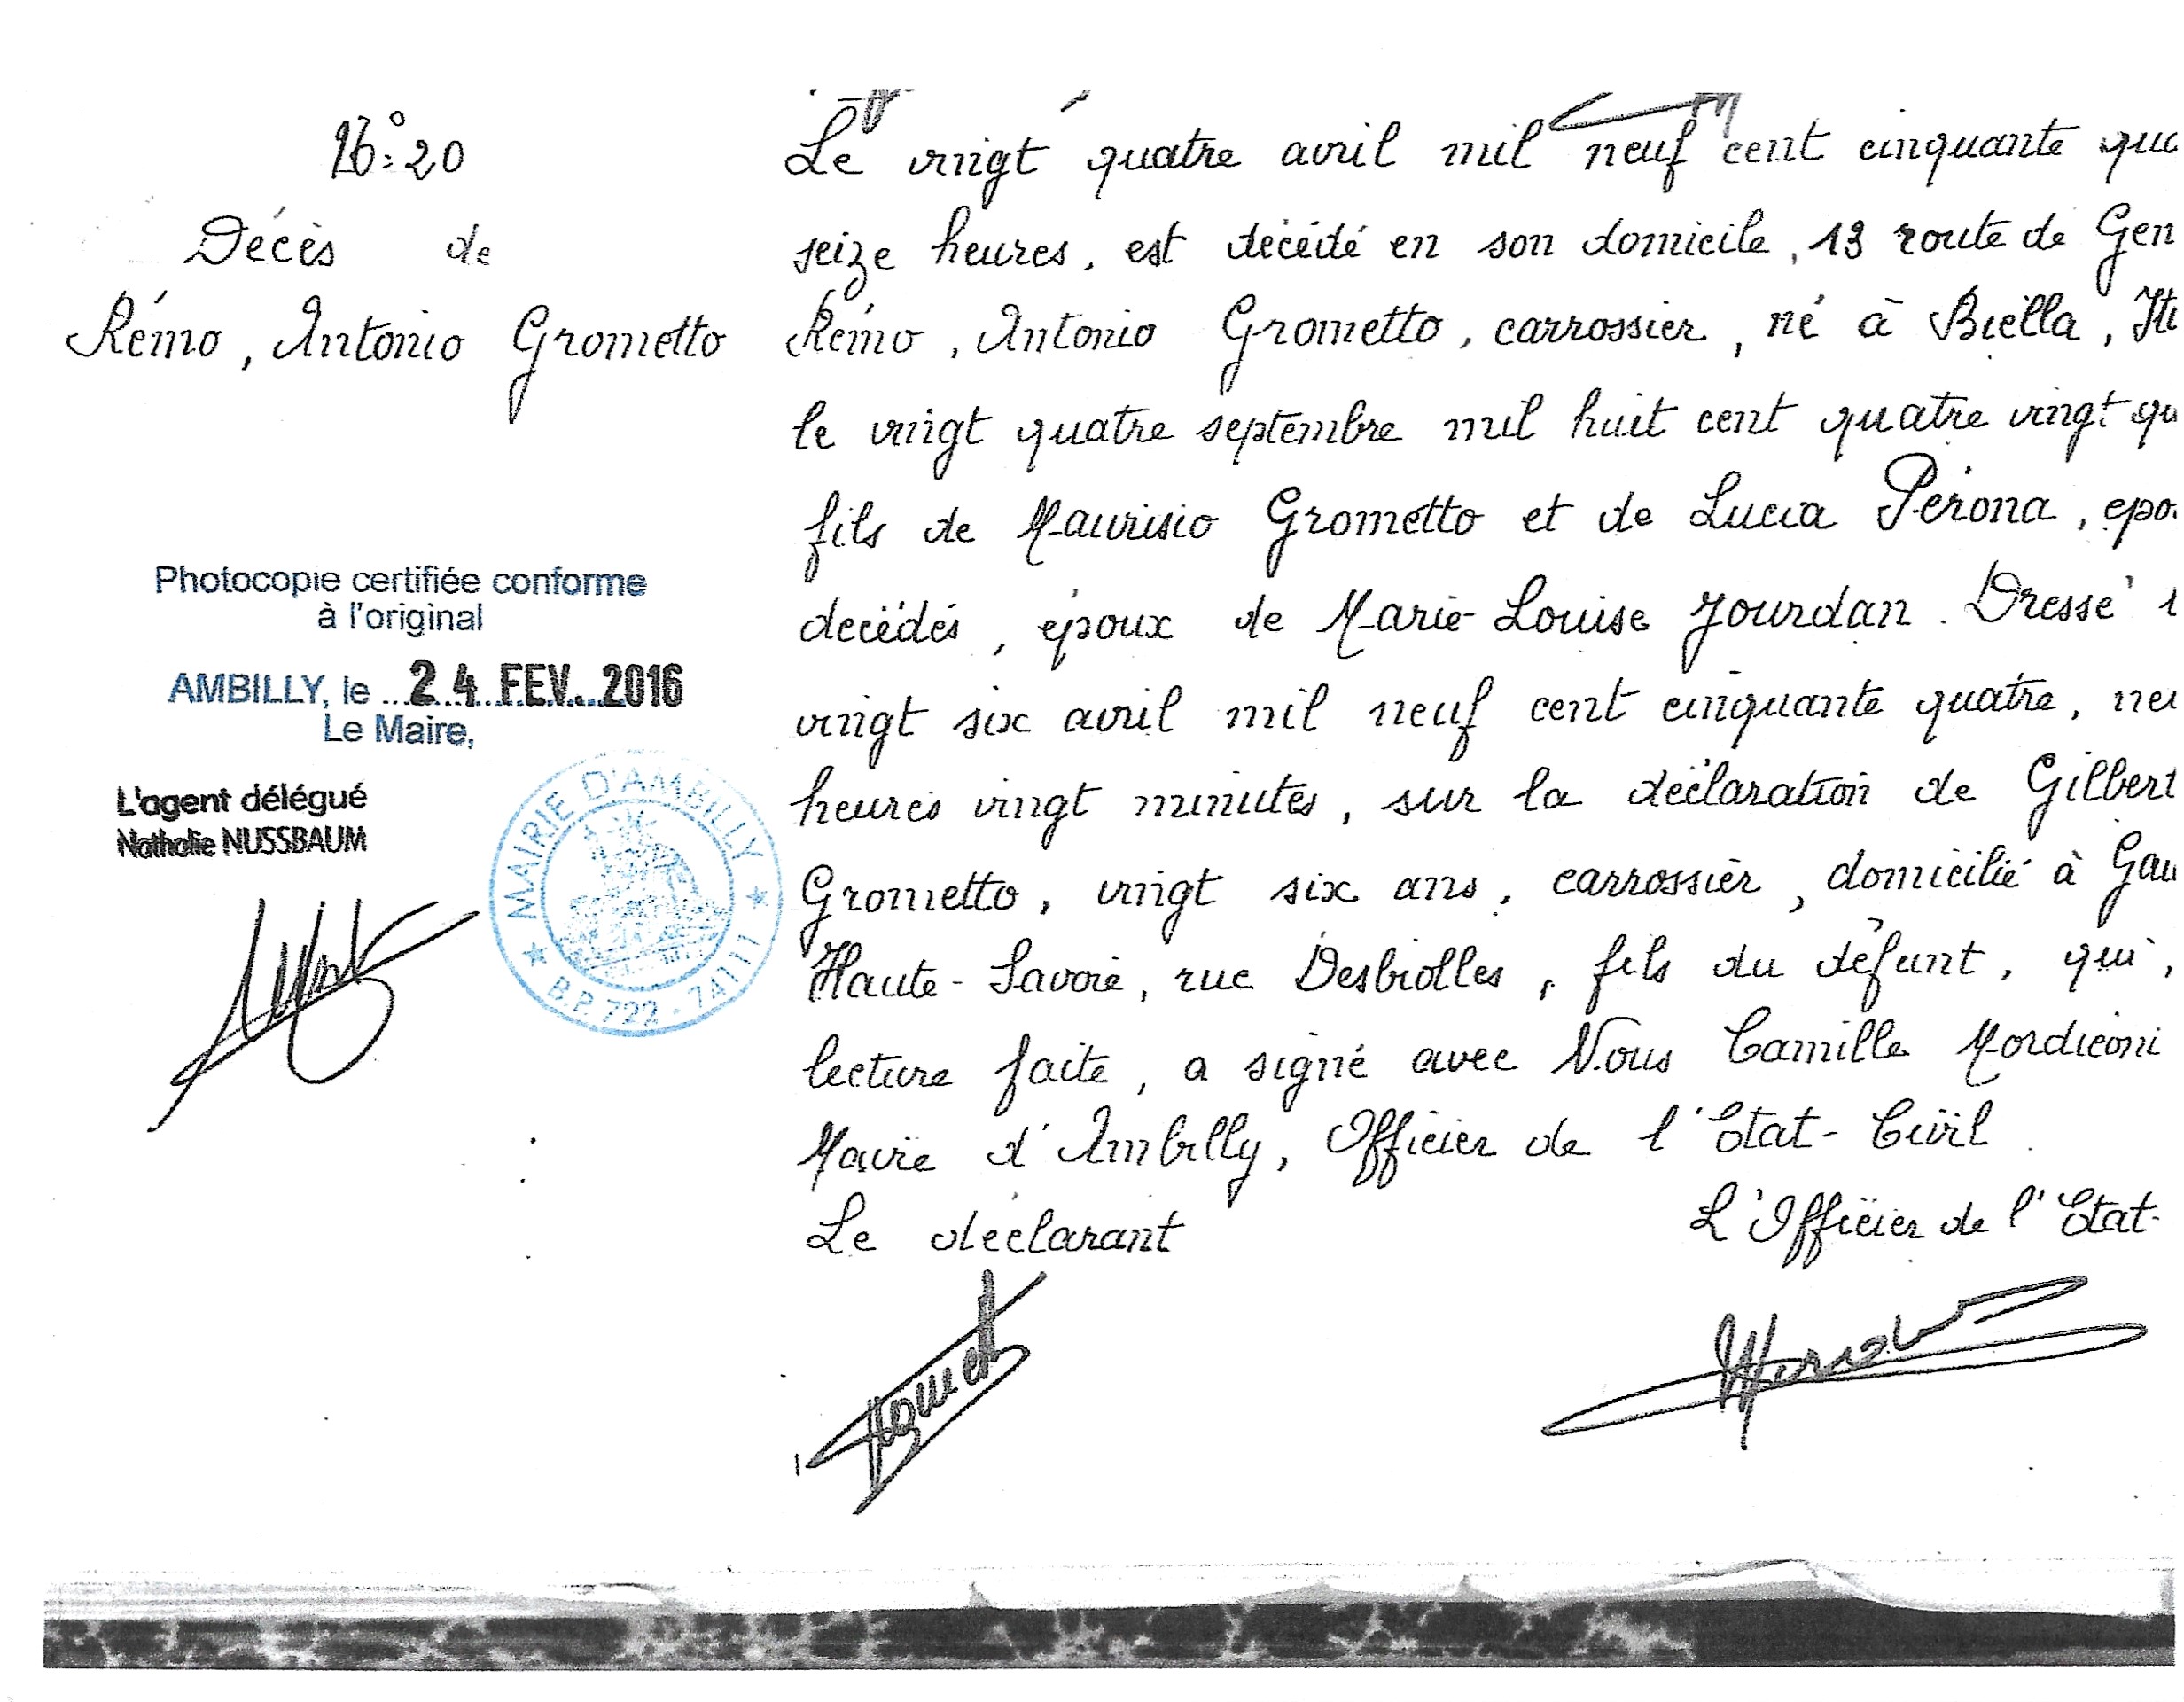 N° 20
Décès de
Rémo, Antonio Grometto
Photocopie certifiée conforme
à l'original
AMBILLY, le 24 FEV. 2016
Le Maire,
L'agent délégué
Nathalie NUSSBAUM
MAIRIE D'AMBILLY
B.P. 722 - 74111
Le vingt quatre avril mil neuf cent cinquante qua
seize heures, est décédé en son domicile, 13 route de Gen
Rémo, Antonio Grometto, carrossier, né à Biella, It
le vingt quatre septembre mil huit cent quatre vingt qu
fils de Maurisio Grometto et de Lucia Pérona, epo
decédés, époux de Marie-Louise Jourdan. Dressé
vingt six avril mil neuf cent cinquante quatre, neu
heures vingt minutes, sur la déclaration de Gilbert
Grometto, vingt six ans, carrossier, domicilié à Gai
Haute-Savoie, rue Desbiolles, fils du défunt, qui,
lecture faite, a signé avec Nous Camille Mordiconi
Maire d'Ambilly, Officier de l'Etat-Civil.
Le déclarant
L'Officier de l'Etat-